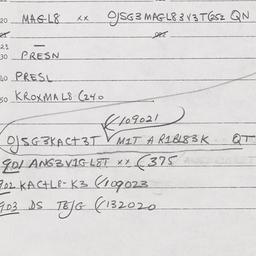 20 MAGL8 xx OJSG3MAGL83V3TGSZ QN
21
30 PRESN
40 PRESL
50 KROXMAL8 (240
(/109021
OJSG3KACT3T MIT ARIBL83K QT
901 ANG3VIGL8T xx (375
902 KACTL8-K3 (/109023
903 DS TEJG (/132020